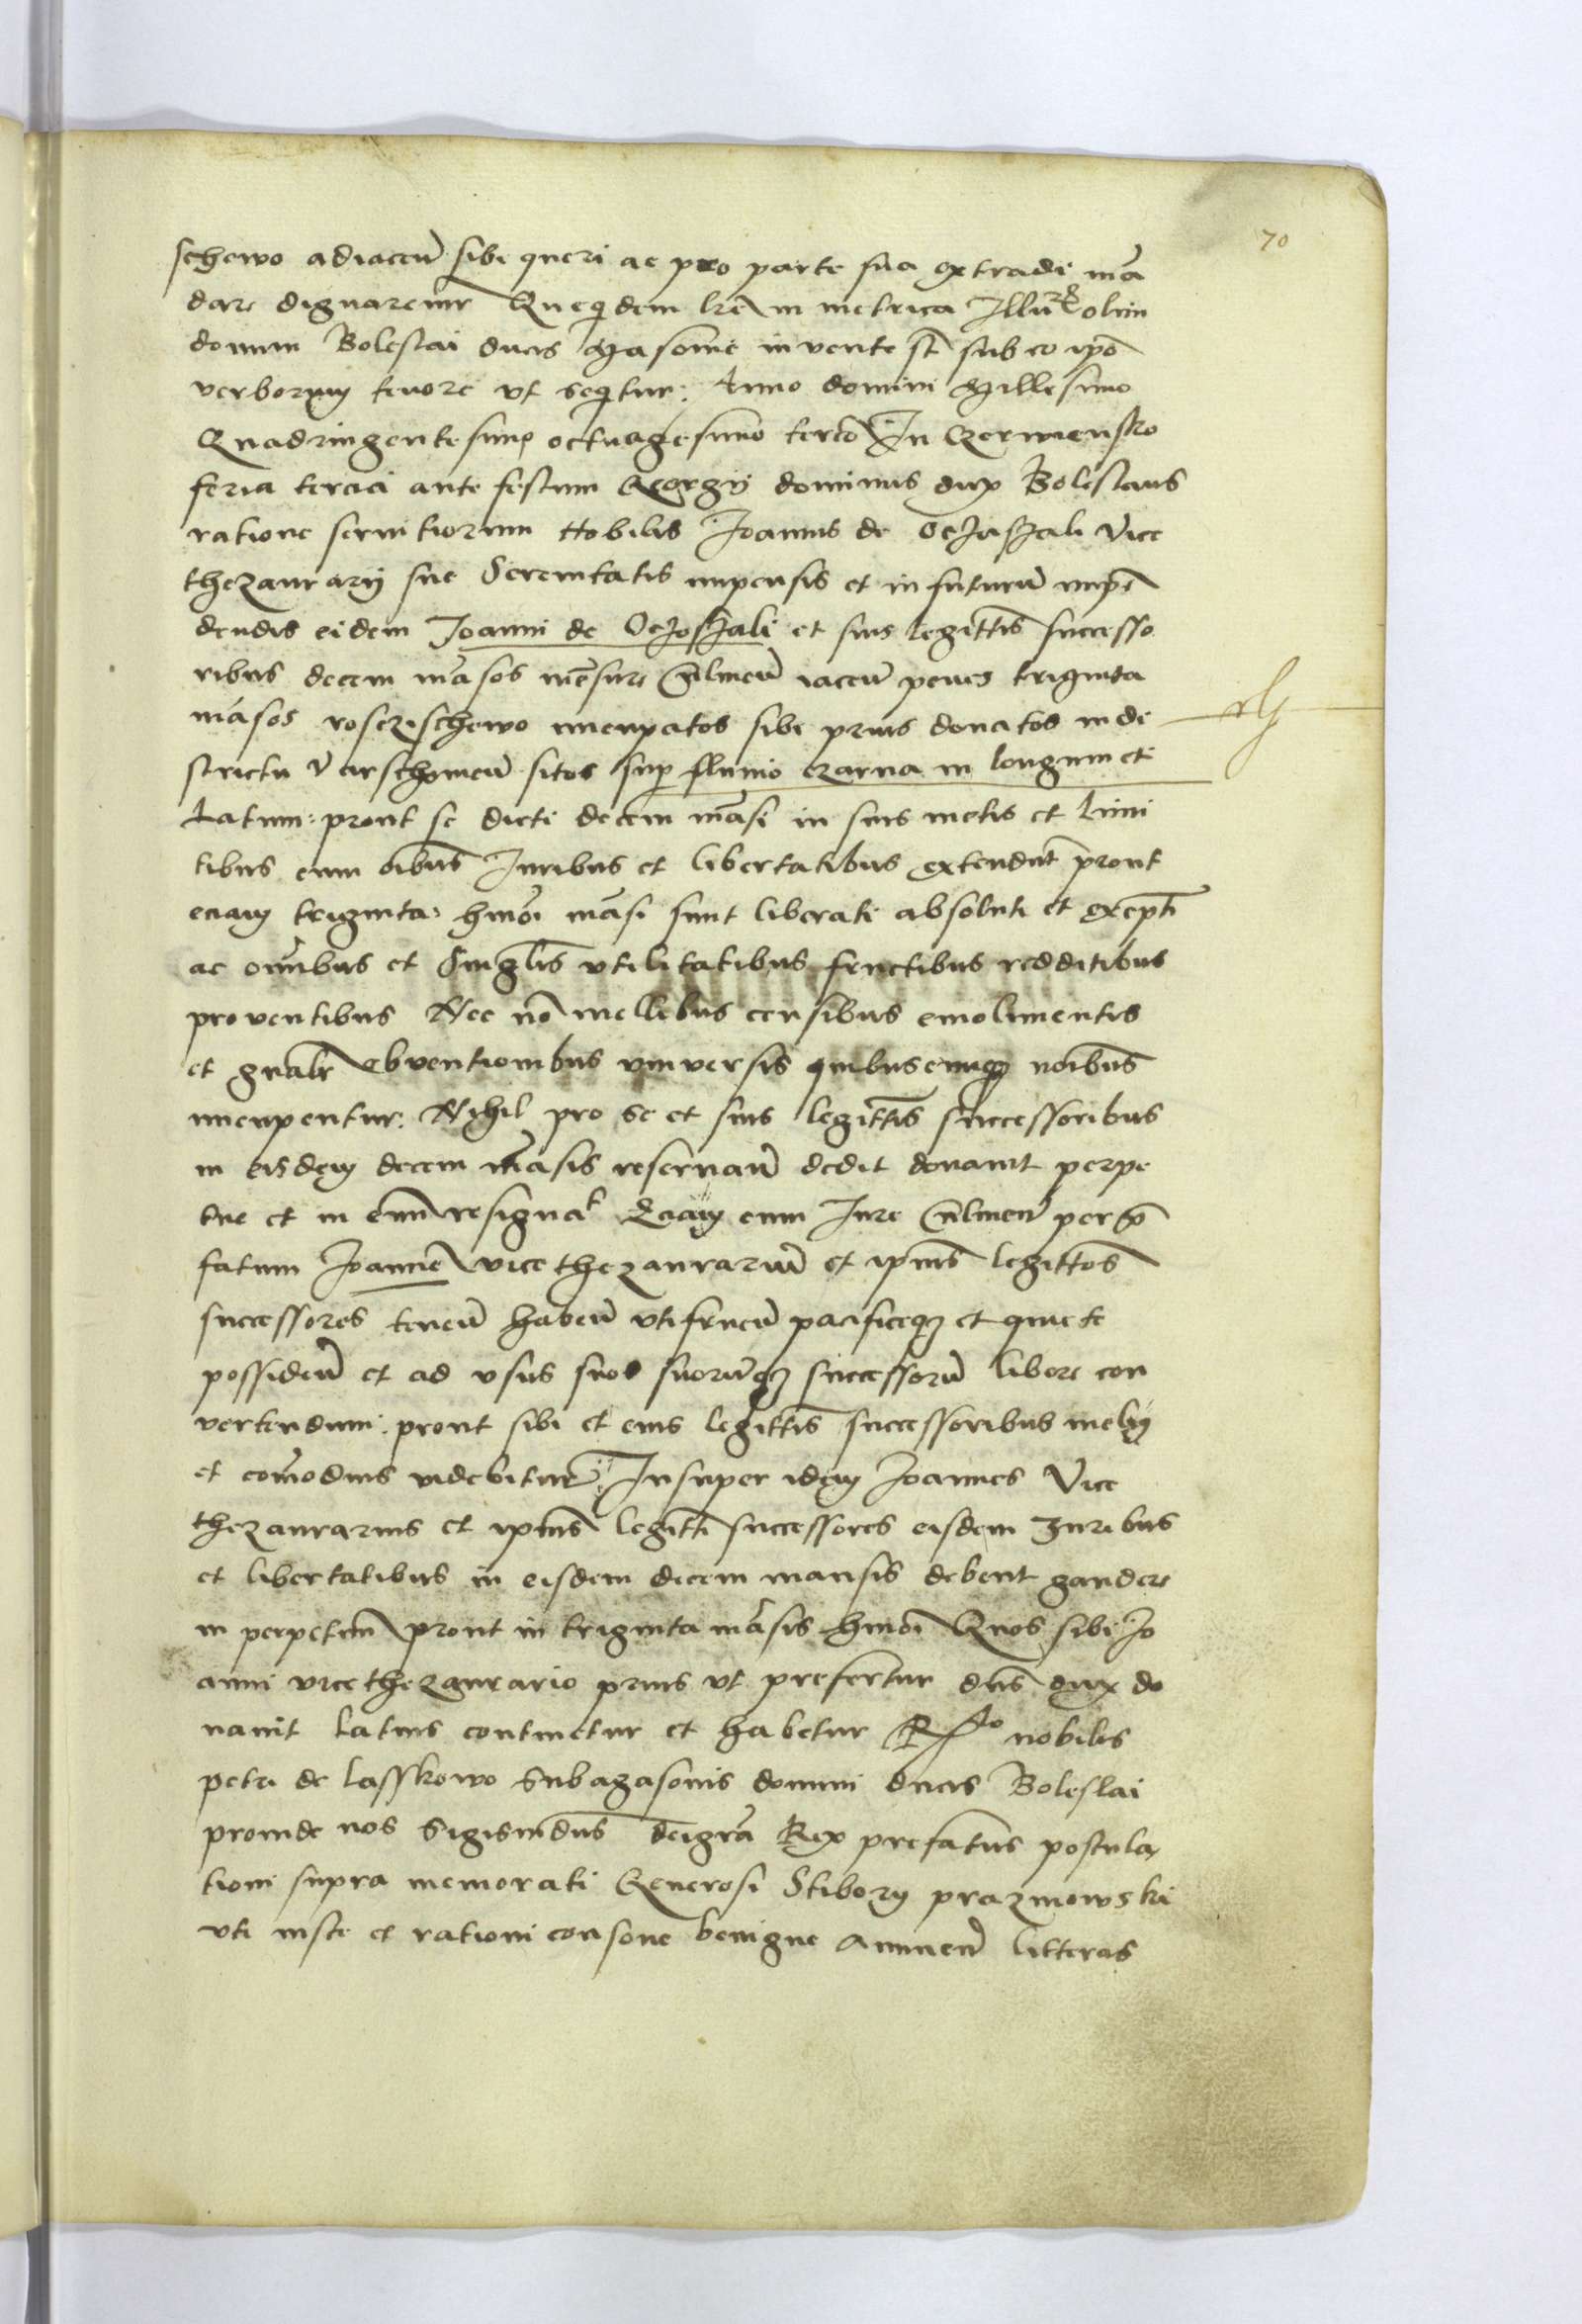 70
schewo adiaceñ sibi queri ac pro parte sua extradi mã
dare dignaremur Queqdem lre in metrica Illuris olim
domini Boleslai ducis Masovie invente st sub eo ipo
verborum tenore ut seqtur: Anno domini Millesimo
Quadringentesimo octuagesimo tercio In Czerwiensko
feria tercia ante festum Georgij dominus dux Boleslaus
ratione servitiorum Nobilis Joannis de Oczassali Vice
thezaurarij sue Serenitatis impensis et in futurũ impẽ
dendis eidem Joanni de Oczossali et suis legittis successo
ribus decem mãsos mẽsure Culmeñ iaceñ penes triginta
mãsos rosczischewo nuncupatos sibi prius donatos in di
strictu Varschovieñ sitos sup fluvio czarna in longum et
Latum: prout se dicti decem mãsi in suis metis et limi
tibus cum oibus Juribus et libertatibus extendũt prout
eciam triginta hmõi mãsi sunt liberati absoluti et exẽpti
ac omnibus et Singlis utilitatibus fructibus redditibus
proventibus Nec nõ mellibus censibus emolimentis
et gnalr obventionibus universis quibuscunqz noibus
nuncupentur: Nihil pro se et suis legittis successoribus
in eisdem decem mãsis reservañ dedit donavit perpe
tue et in evũ resignat Eciam cum Jure Culmeñ per p̃
fatum Joannẽ vicethezaurariũ et ipius legittos
successores teneñ habeñ utifrueñ pacificeqz et quiete
possideñ et ad usus suos suorũqz successorũ libere con
vertendum: prout sibi et eius legittis successoribus meliꝰ
et comodius videbitur: Insuper idem Joannes Vice
thezaurarius et ipius legitti successores eisdem Juribus
et libertatibus in eisdem decem mansis debent gaudere
in perpetuũ prout in triginta mãsis hmõi Quos sibi Jo
anni vicethezaurario prius ut prefertur dns dux do
navit Latius continetur et habetur Rfto nobilis
petri de Lasskowo Subagasonis domini ducis Boleslai
proinde nos Sigismdus dei gra Rex prefatus postula
tioni supra memorati Generosi Stiborij prazmowski
uti iuste et rationi consone benigne Annueñ litteras